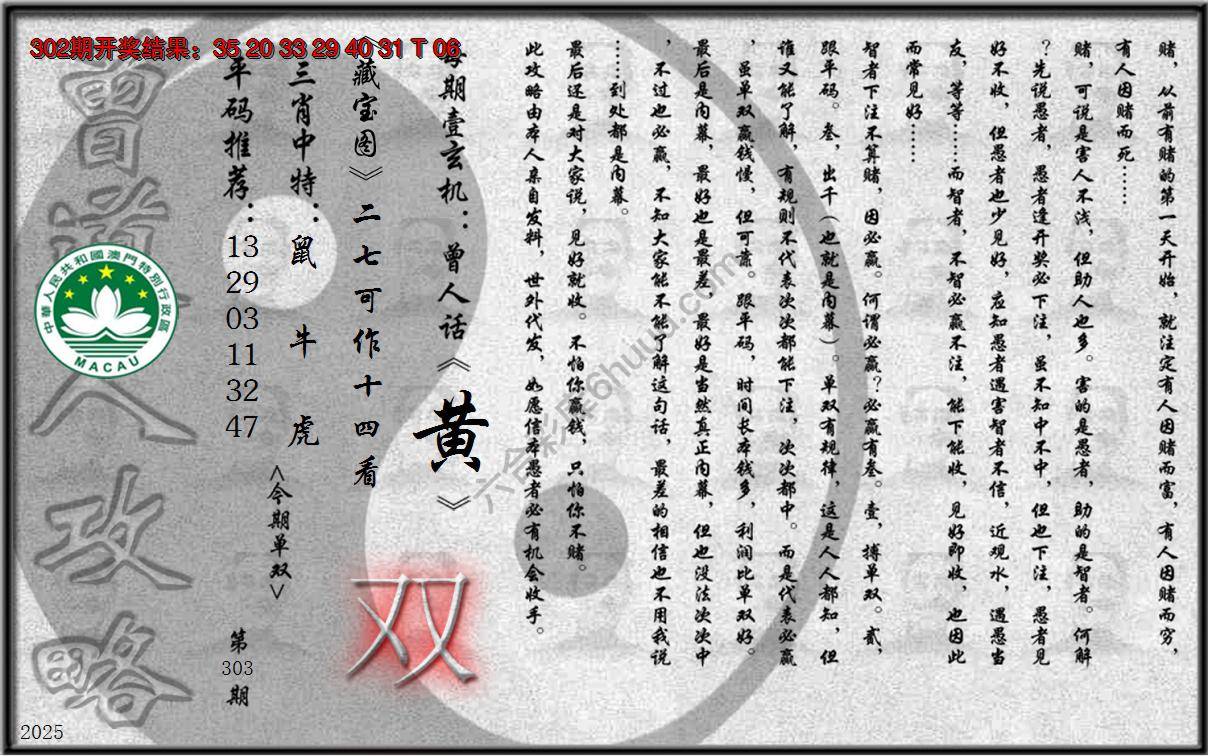 302期开奖结果：35 20 33 29 40 31 T 06
赌，从前有赌的第一天开始，就注定有人因赌而富，有人因赌而穷，
有人因赌而死……
赌，可说是害人不浅，但助人也多。害的是愚者，助的是智者。何解
？先说愚者，愚者逢开奖必下注，虽不知中不中，但也下注，愚者见
好不收，但愚者也少见好，应知愚者遇害智者不信，近观水，遇愚当
友，等等……而智者，不智必赢不注，能下能收，见好即收，也因此
而常见好……
智者下注不算赌，因必赢。何谓必赢？必赢有叁。壹，搏单双。贰，
跟平码。叁，出千（也就是内幕）。单双有规律，这是人人都知，但
谁又能了解，有规则不代表次次都能下注，次次都中。而是代表必赢
，虽单双赢钱慢，但可靠。跟平码，时间长本钱多，利润比单双好。
最后是内幕，最好也是最差，最好是当然真正内幕，但也没法次次中
，不过也必赢，不知大家能不能了解这句话，最差的相信也不用我说
……到处都是内幕。
最后还是对大家说，见好就收。不怕你赢钱，只怕你不赌。
此攻略由本人亲自发料，世外代发，如愿信本愚者必有机会收手。
每期壹玄机：曾人话《黄》
《藏宝图》二七可作十四看
双
三肖中特：鼠 牛 虎
<今期单双>
平码推荐：
13
29
03
11
32
47
第
303
期
曾道人攻略
中華人民共和國澳門特別行政區
MACAU
六合彩库6huuu.com
2025